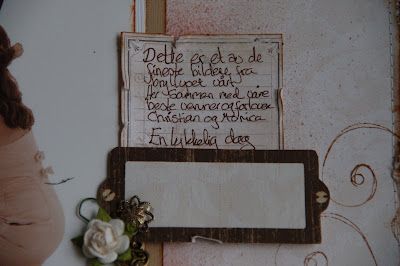 Dette er et av de
fineste bildene fra
bryllupet vårt
her sammen med våre
beste venner og forlovere
Christian og Monica
En lykkelig dag